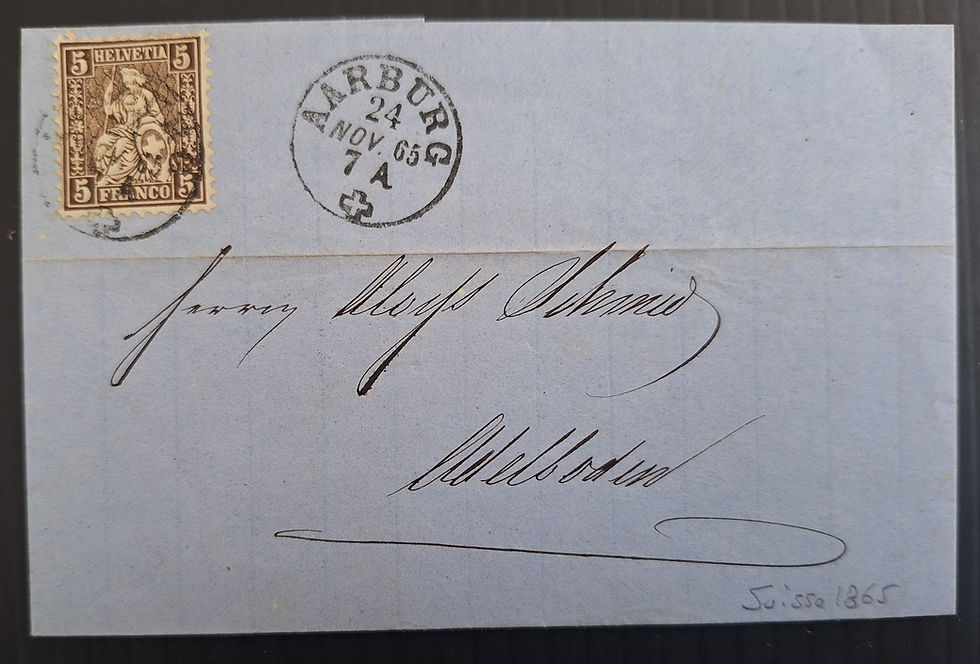 5 HELVETIA 5
5 FRANCO 5
AARBURG
24
NOV. 65
7 A
Herrn Aloys Schmid
Adelboden
Suisse 1865